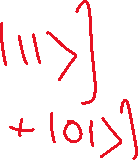 |11>]
+|01>]